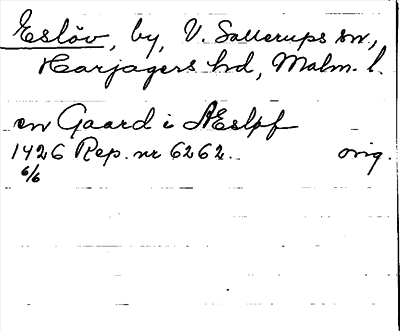 Eslöv, by, V. Sallerups sn,
Harjagers hd, Malm. l.
en Gaard i Æslpf
1426 Rep. nr 6262. orig.
6/6